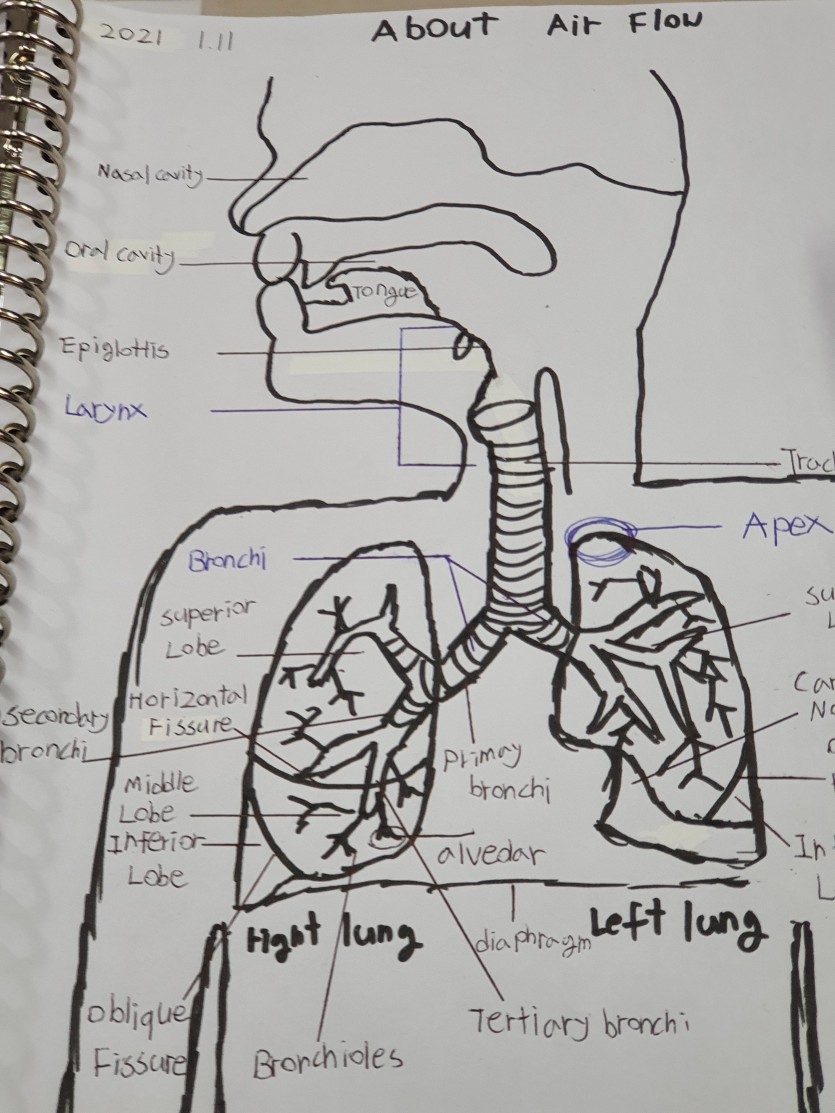 2021 1.11
About Air Flow
Nasal cavity
Oral cavity
Tongue
Epiglottis
Larynx
Trac
Apex
Bronchi
superior
Lobe
su
L
Horizontal
Fissure
secondary
bronchi
Car
No
primary
bronchi
Middle
Lobe
Inferior
Lobe
alvedar
In
L
right lung
Left lung
diaphragm
oblique
Fissure
Tertiary bronchi
Bronchioles